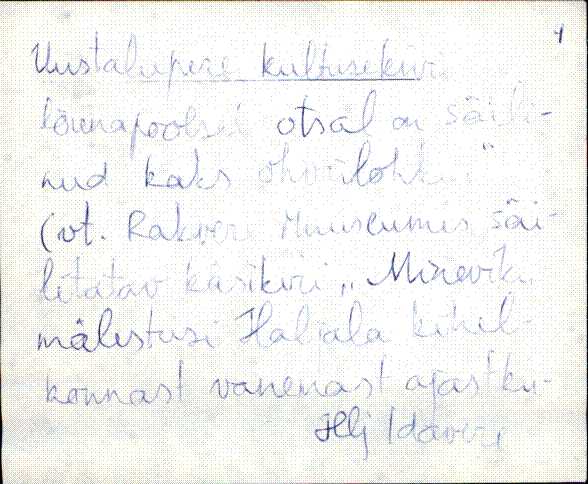 1
Uustalupere kultusekivi
lõunapoolsel otsal on säili-
nud kaks ohvrilohku"
(vt. Rakvere Muuseumis säi-
litatav käsikiri „Mineviku
mälestusi Haljala kihel-
konnast vanemast ajast ku-
Hlj Idavere